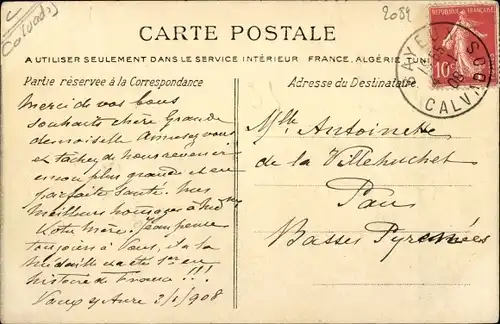 (Calvados)
2089
CARTE POSTALE
A UTILISER SEULEMENT DANS LE SERVICE INTÉRIEUR FRANCE, ALGÉRIE, TUN
Partie réservée à la Correspondance
Adresse du Destinataire
RÉPUBLIQUE FRANÇAISE
10
BAYEUX
08
CALVADOS
Merci de vos bons
souhaits chère Grande
demoiselle Amusez vous
et tachez de nous revenir
encore plus grande et en
parfaite Santé. Mes
meilleurs hommages à Mdme
Votre Mère. Jean pense
toujours à Vous, il a la
médaille
histoire de France !!!
Vaux s/ Aure 3/1/908
Mlle Antoinette
de la Villehuchet
Pau
Basses Pyrennées